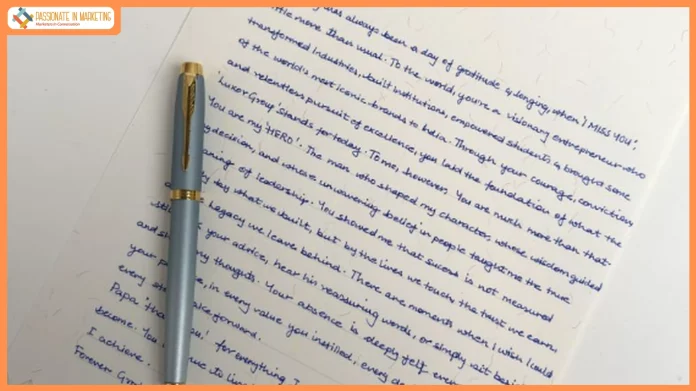 PASSIONATE IN MARKETING
Marketers in Conversation
was always been a day of gratitude & longing, when 'I MISS YOU'
little more than usual. To the world, you're a visionary entrepreneur who
transformed industries, built institutions, empowered students & brought some
of the world's most iconic brands to India. Through your courage, conviction,
and relentless pursuit of excellence, you laid the foundation of what the
'Luxor Group' stands for today. To me, however, you are much more than that-
You are my 'HERO'. The man who shaped my character, whose wisdom guided
decision, and whose unwavering belief in people taught me the true
meaning of leadership. You showed me that success is not measured
by what we built, but by the lives we touch, the trust we earn,
and legacy we leave behind. There are moments when I wish I could
your advice, hear his reassuring words, or simply sit
my thoughts. Your absence is deeply felt
in every value you instilled, every
forward.
Papa 'for everything. I
become. You to
I achieve.
Forever